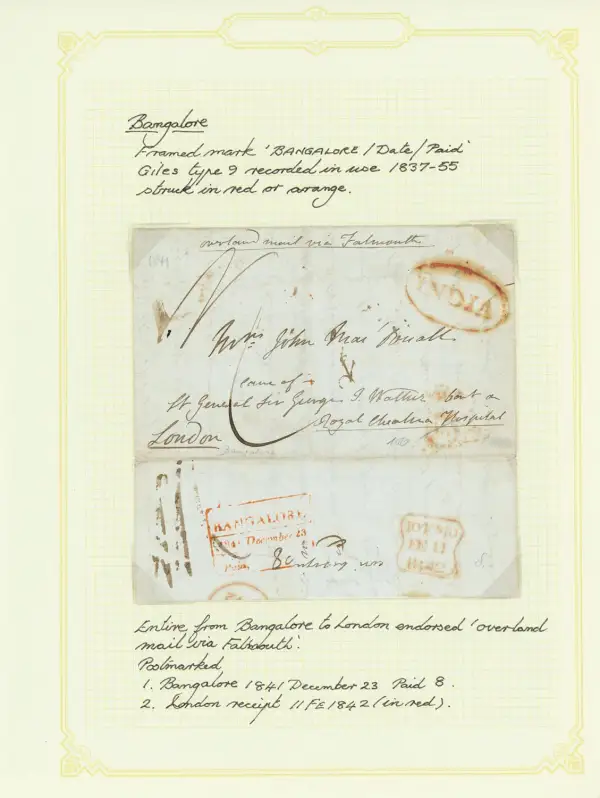 Bangalore
Framed mark 'BANGALORE / Date / Paid'
Giles type 9 recorded in use 1837-55
struck in red or arange.
overland mail via Falmouth
1841
INDIA
Mrs John Mac
care of
Lt General Sir George Walker Bart
Royal Hospital
London
Bangalore
BANGALORE
1841 December 23
Paid,
8
11 FE 11
1842
8.
Entire from Bangalore to London endorsed 'overland
mail via Falmouth'.
Postmarked
1. Bangalore 1841 December 23 Paid 8.
2. London receipt 11 FE 1842 (in red).